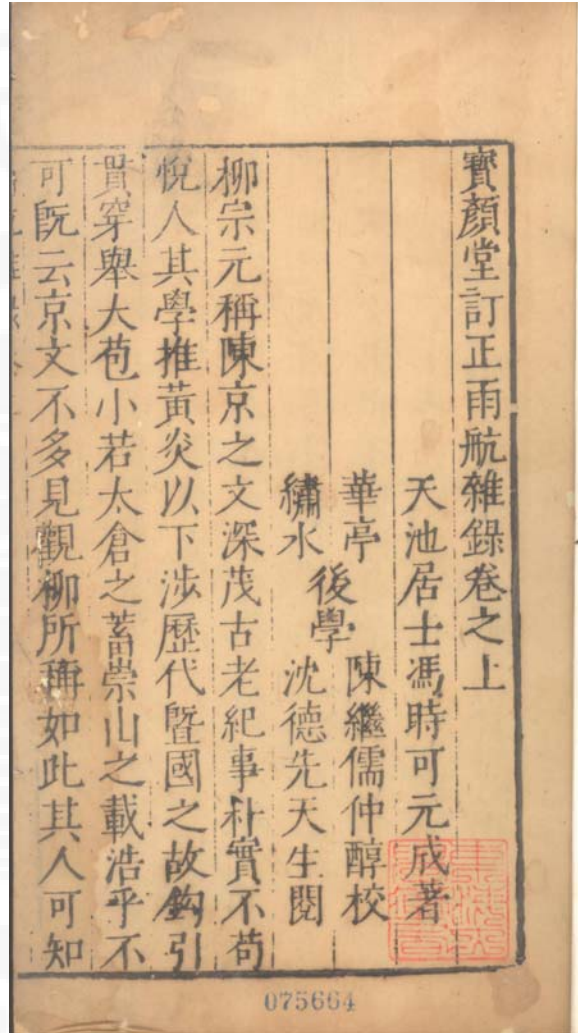 寶顏堂訂正雨航雜錄卷之上
天池居士馮時可元成著
華亭 陳繼儒仲醇校
後學
繡水 沈德先天生閱
柳宗元稱陳京之文深茂古老紀事朴實不苟
悅人其學推黃炎以下涉歷代暨國之故鈎引
貫穿舉大苞小若太倉之蓄崇山之載浩乎不
可旣云京文不多見觀柳所稱如此其人可知
075664